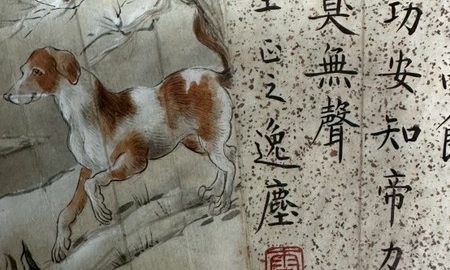 功安知帝力
臭無聲
正之逸塵